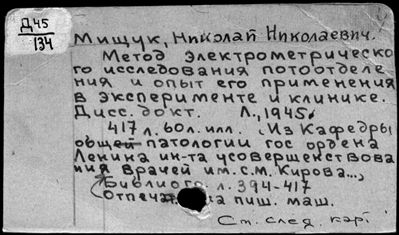 Д45
134
Мищук, Николай Николаевич.
Метод электрометрическо
го исследования потоотделе
ния и опыт его применения
в эксперименте и клинике.
Дисс. докт. Л., 1945.
417 л. 60 л. илл. (Из Кафедры
общей патологии гос ордена
Ленина ин-та усовершенствова
ния врачей им. С.М. Кирова...,
Библиогр: л. 394-417
Отпеча на пиш. маш.
См. след. карт